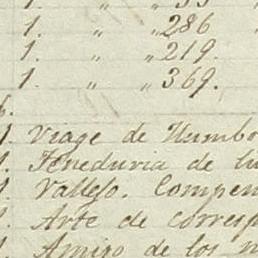 1. " " 286
1. " " 219.
1. " " 369.
1 Viage de Humbo
1. Teneduria de li
1. Vallejo. Compen
1. Arte de corresp
1. Amigo de los n